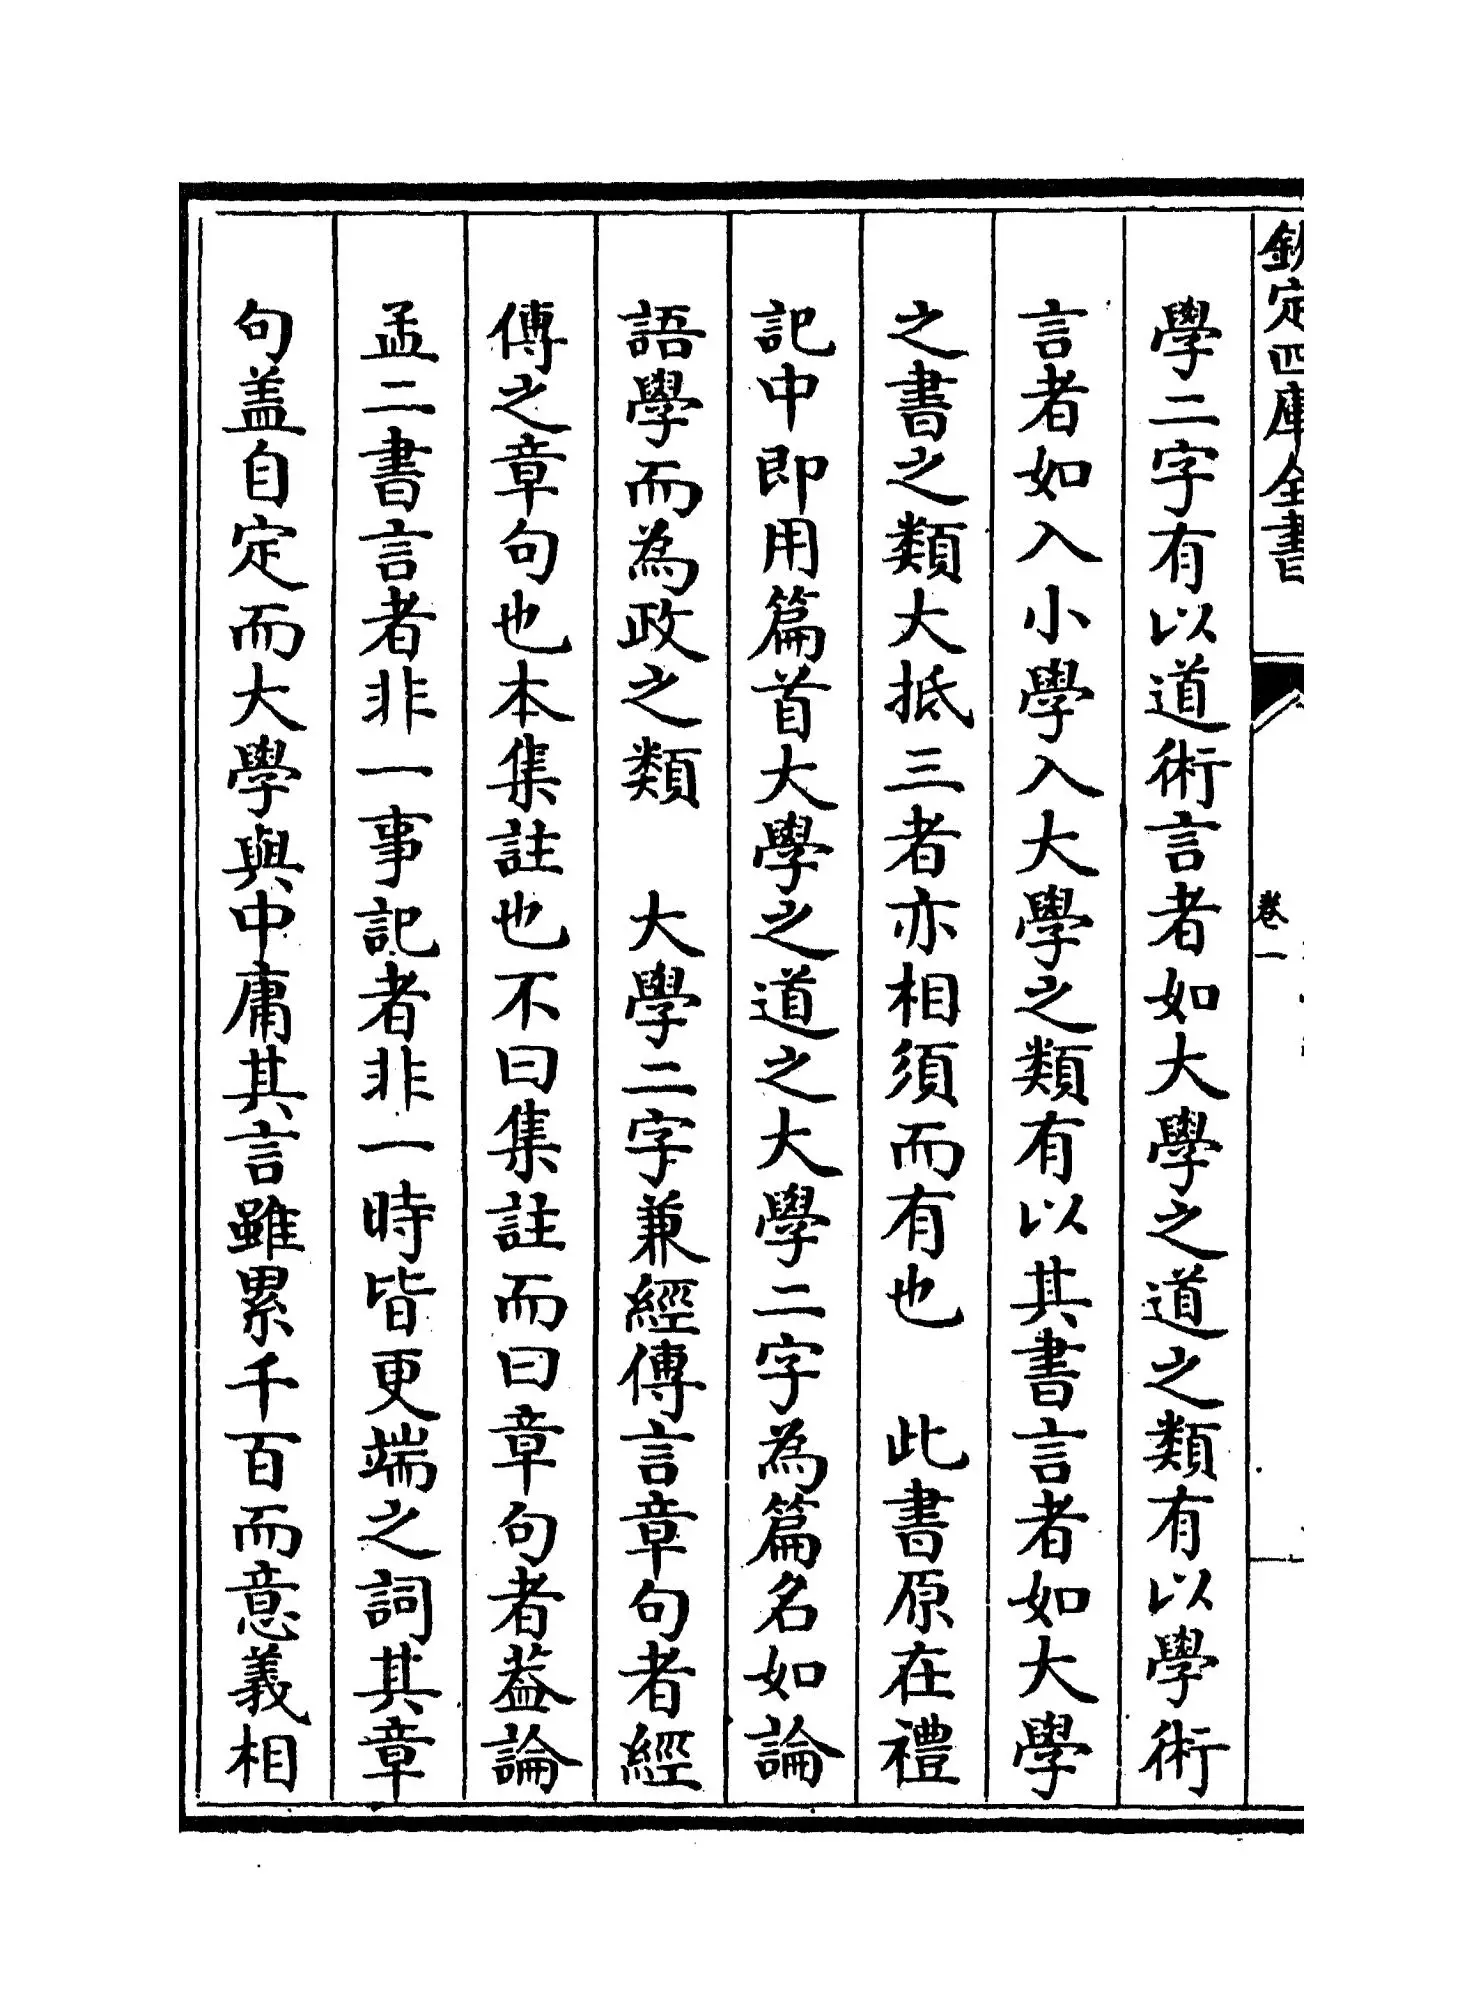 欽定四庫全書
卷一
學二字有以道術言者如大學之道之類有以學術
言者如入小學入大學之類有以其書言者如大學
之書之類大抵三者亦相須而有也　此書原在禮
記中即用篇首大學之道之大學二字為篇名如論
語學而為政之類　大學二字兼經傳言章句者經
傳之章句也本集註也不曰集註而曰章句者葢論
孟二書言者非一事記者非一時皆更端之詞其章
句盖自定而大學與中庸其言雖累千百而意義相